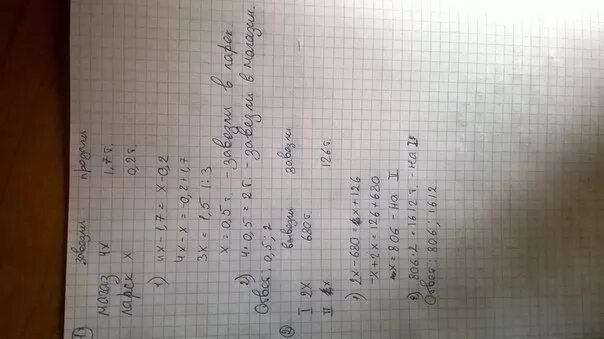 1) завезли продали
магаз 4х 1,7 т.
ларек х 0,2 т.
1) 4х - 1,7 = х - 0,2
4х - х = -0,2 + 1,7
3х = 1,5 | : 3
х = 0,5 т - завезли в ларек
2) 4 · 0,5 = 2 т. - завезли в магазин.
Ответ: 0,5; 2
② вывезли завезли
I 2х 680 т.
II х 126 т.
1) 2х - 680 = х + 126
-х + 2х = 126 + 680
х = 806 - на II
2) 806 · 2 = 1612 т. - на I
Ответ: 806; 1612